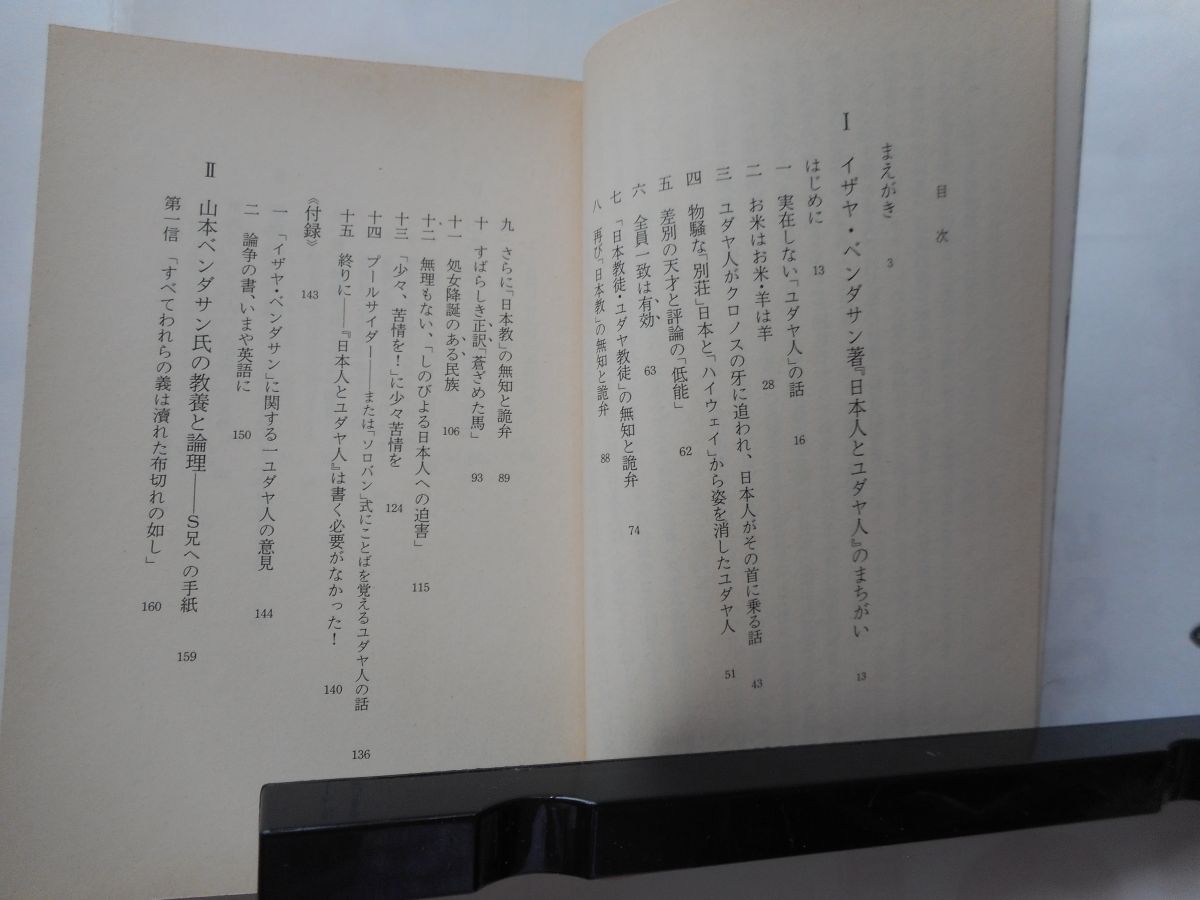 目次
まえがき 3
Ⅰ イザヤ・ベンダサン著『日本人とユダヤ人』のまちがい 13
はじめに 13
一 実在しない「ユダヤ人」の話 16
二 お米はお米・羊は羊 28
三 ユダヤ人がクロノスの牙に追われ、日本人がその首に乗る話 43
四 物騒な「別荘」日本と「ハイウェイ」から姿を消したユダヤ人 51
五 差別の天才と評論の「低能」 62
六 全員一致は有効 63
七 「日本教徒・ユダヤ教徒」の無知と詭弁 74
八 再び「日本教」の無知と詭弁 88
九 さらに「日本教」の無知と詭弁 89
十 すばらしき正訳「蒼ざめた馬」 93
十一 処女降誕のある民族 106
十二 無理もない、「しのびよる日本人への迫害」 115
十三 「少々、苦情を!」に少々苦情を 124
十四 プールサイダー――または「ソロバン」式にことばを覚えるユダヤ人の話 136
十五 終りに――『日本人とユダヤ人』は書く必要がなかった! 140
《付録》 143
一 「イザヤ・ベンダサン」に関する一ユダヤ人の意見 144
二 論争の書、いまや英語に 150
Ⅱ 山本ベンダサン氏の教養と論理――S兄への手紙 159
第一信 「すべてわれらの義は瀆れた布切れの如し」 160